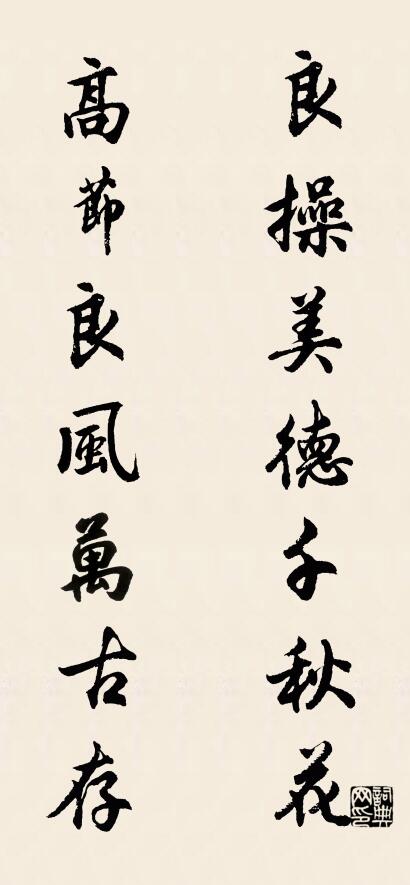 良操美德千秋花
高節良風萬古存
詞典
网印